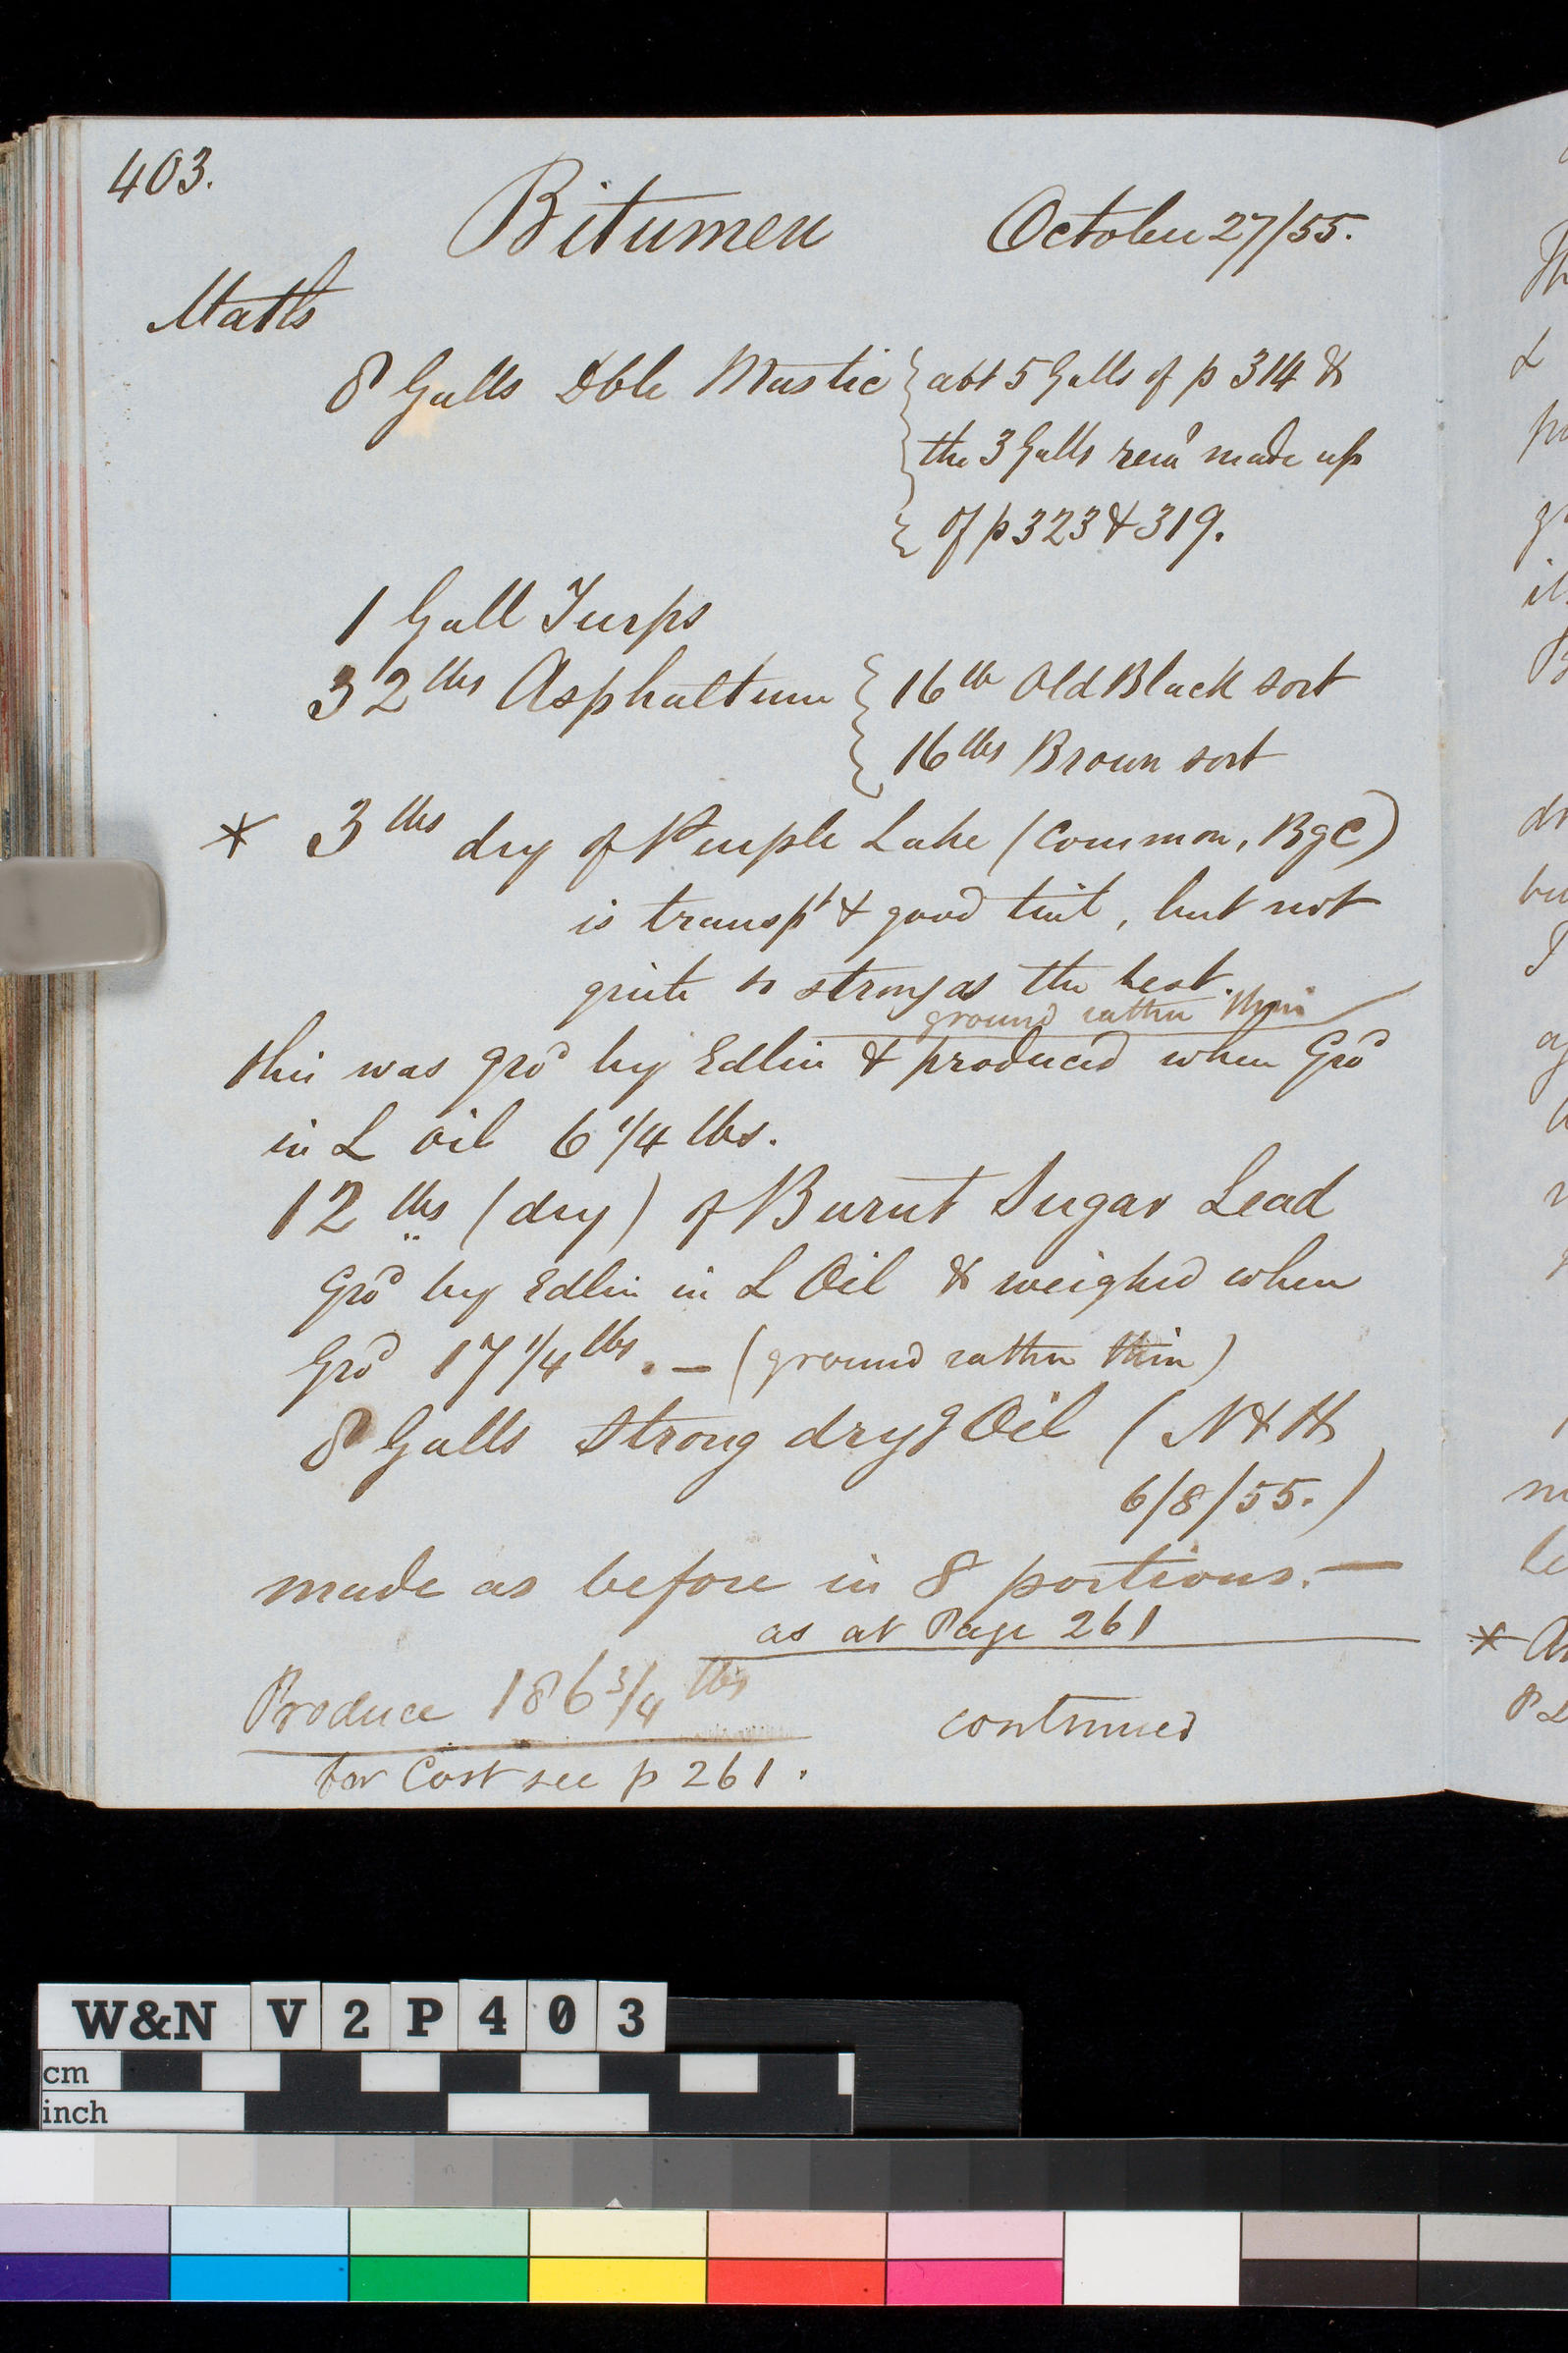 403.
Bitumen October 27/55.
Matls
8 Galls Dble Mastic { abt 5 Galls of p 314 &
the 3 Galls remd made up
of p 323 & 319.
1 Gall Turps
32 lbs Asphaltum { 16 lb Old Black sort
16 lbs Brown sort
* 3 lbs dry of Purple Lake (Common, BgC)
is transpt & good tint, but not
quite so strong as the best.
ground rather thin
this was grd by Edlin & produced when Grd
in L oil 6 1/4 lbs.
12 lbs (dry) of Burnt Sugar Lead
Grd by Edlin in L Oil & weighed when
Grd 17 1/4 lbs. — (ground rather thin)
8 Galls Strong dryg Oil (N & H
6/8/55.)
made as before in 8 portions. —
as at Page 261
Produce 186 3/4 lbs
continued
for Cost see p 261.
W&N V2P403
cm
inch